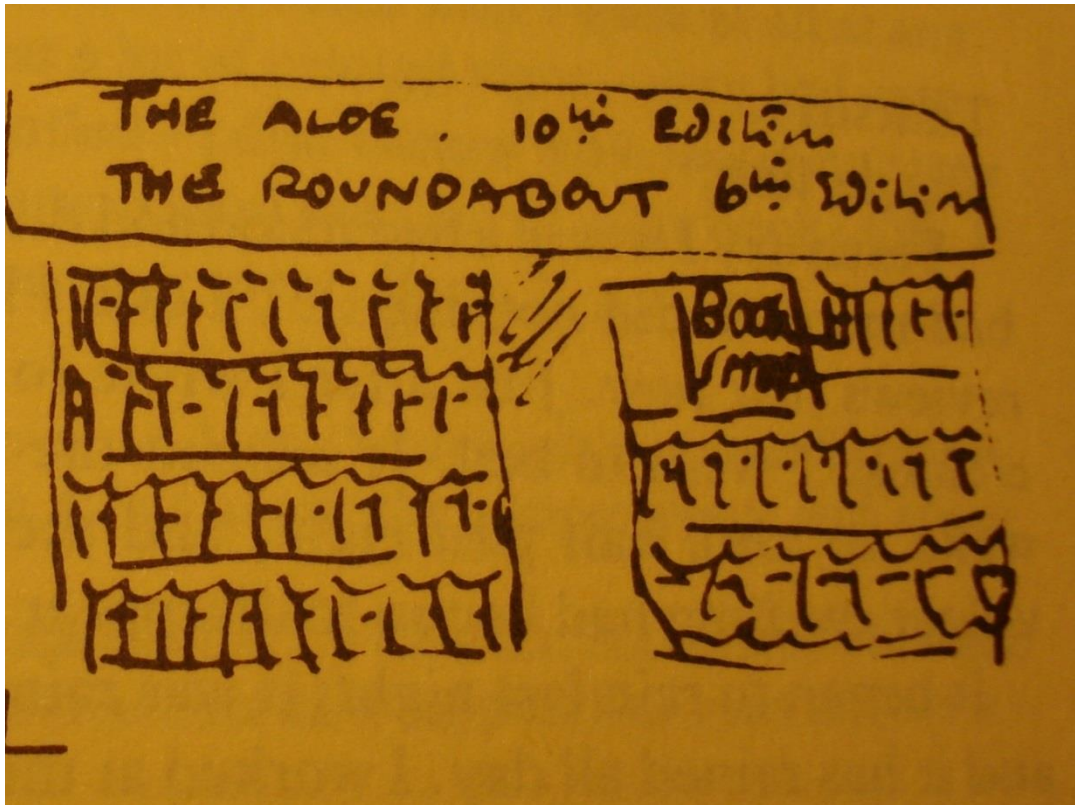 THE ALOE. 10th Edition
THE ROUNDABOUT 6th Edition
BOOK
SHOP